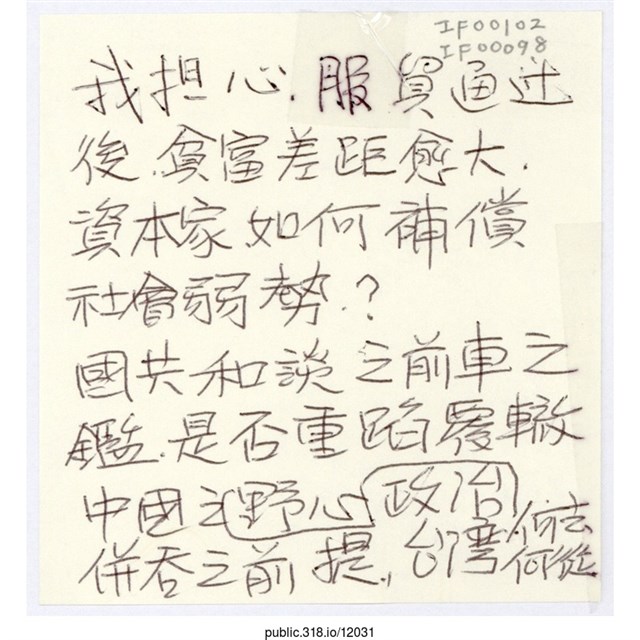 IF00102
IF00098
我担心.服貿通过
後.貧富差距愈大.
資本家如何補償
社會弱勢.?
國共和談之前車之
鑑.是否重蹈覆轍
中國之野心政治
併吞之前提,台灣何去何從
public.318.io/12031